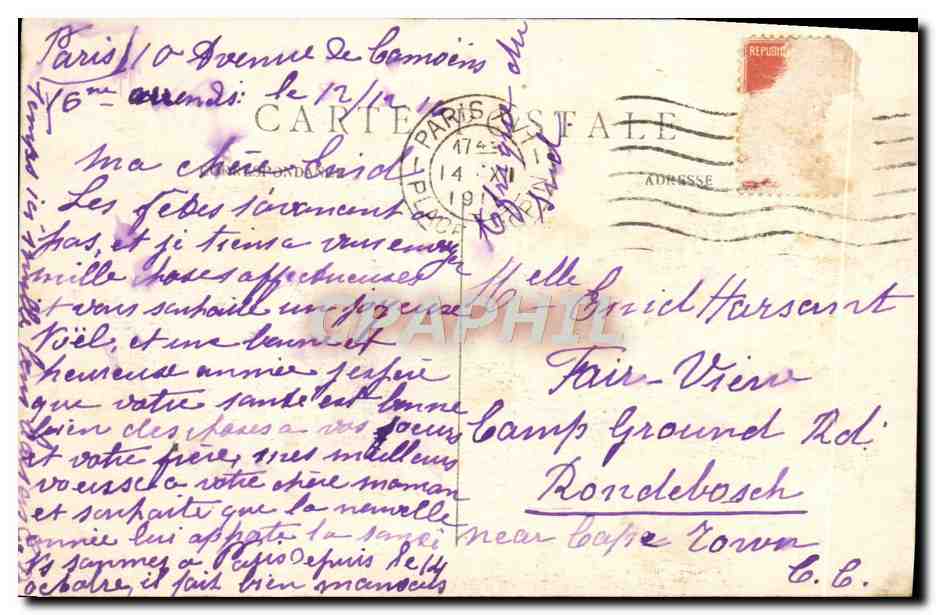 Paris 10 Avenue de Camoëns
16me arrondis: le 12/12
CARTE POSTALE
CORRESPONDANCE
ADRESSE
REPUBLI
PARIS XVI
1745
14 XI
19
PLACE
Ma chère Enid
Les fêtes s'avancent a
pas, et je tiens a vous envoyer
mille choses affectueuses
et vous souhaite un joyeuse
Noël, et une bonne et
heureuse année j'espère
que votre santé est bonne
bien des choses a vos soeurs
et votre frère, mes meilleurs
voeux a votre chère maman
et souhaite que la nouvelle
année lui apporte la santé
Ns sommes a Paris Depuis le 14
octobre, il fait bien mauvais
CPAPHIL
Melle Enid Harsant
Fair-View
Camp Ground Rd.
Rondebosch
near Cape Town
C. C.